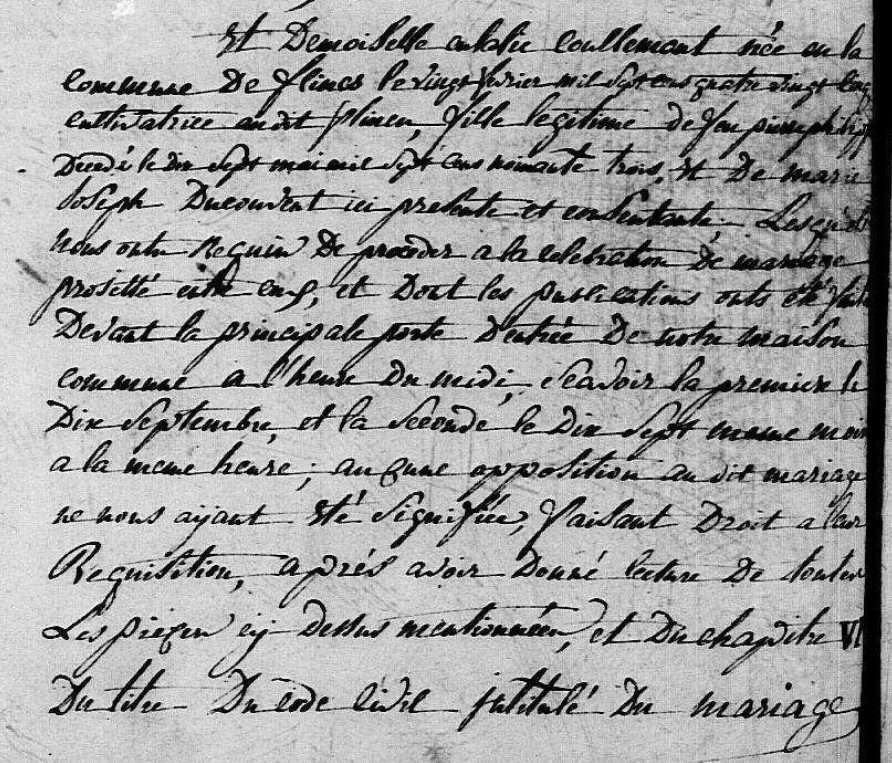 Et Demoiselle eulalie coullemant née en la
commune De flines le vingt fevrier mil sept cens quatre vingt cinq
cultivatrice audit flines, fille legitime de feu pierre philippe
Decedé le dix sept mai mil sept cens nonante trois, Et De marie
Joseph Ducouvent ici presente et consentante; Lesquels
nous onts Requis De proceder a la celebration De mariage
projetté entre eux, et Dont les publications onts été faites
Devant la principale porte D'entrée De notre maison
commune a l'heure Du midi, sçavoir la premiere le
Dix septembre, et la seconde le Dix sept meme mois
a la meme heure; aucune opposition au dit mariage
ne nous aÿant Eté signifiée, faisant Droit a leur
Requisition, aprés avoir Donné lecture De toutes
Les pieces cÿ dessus mentionnées, et Du chapitre VI
Du titre Du code civil intitulé Du mariage